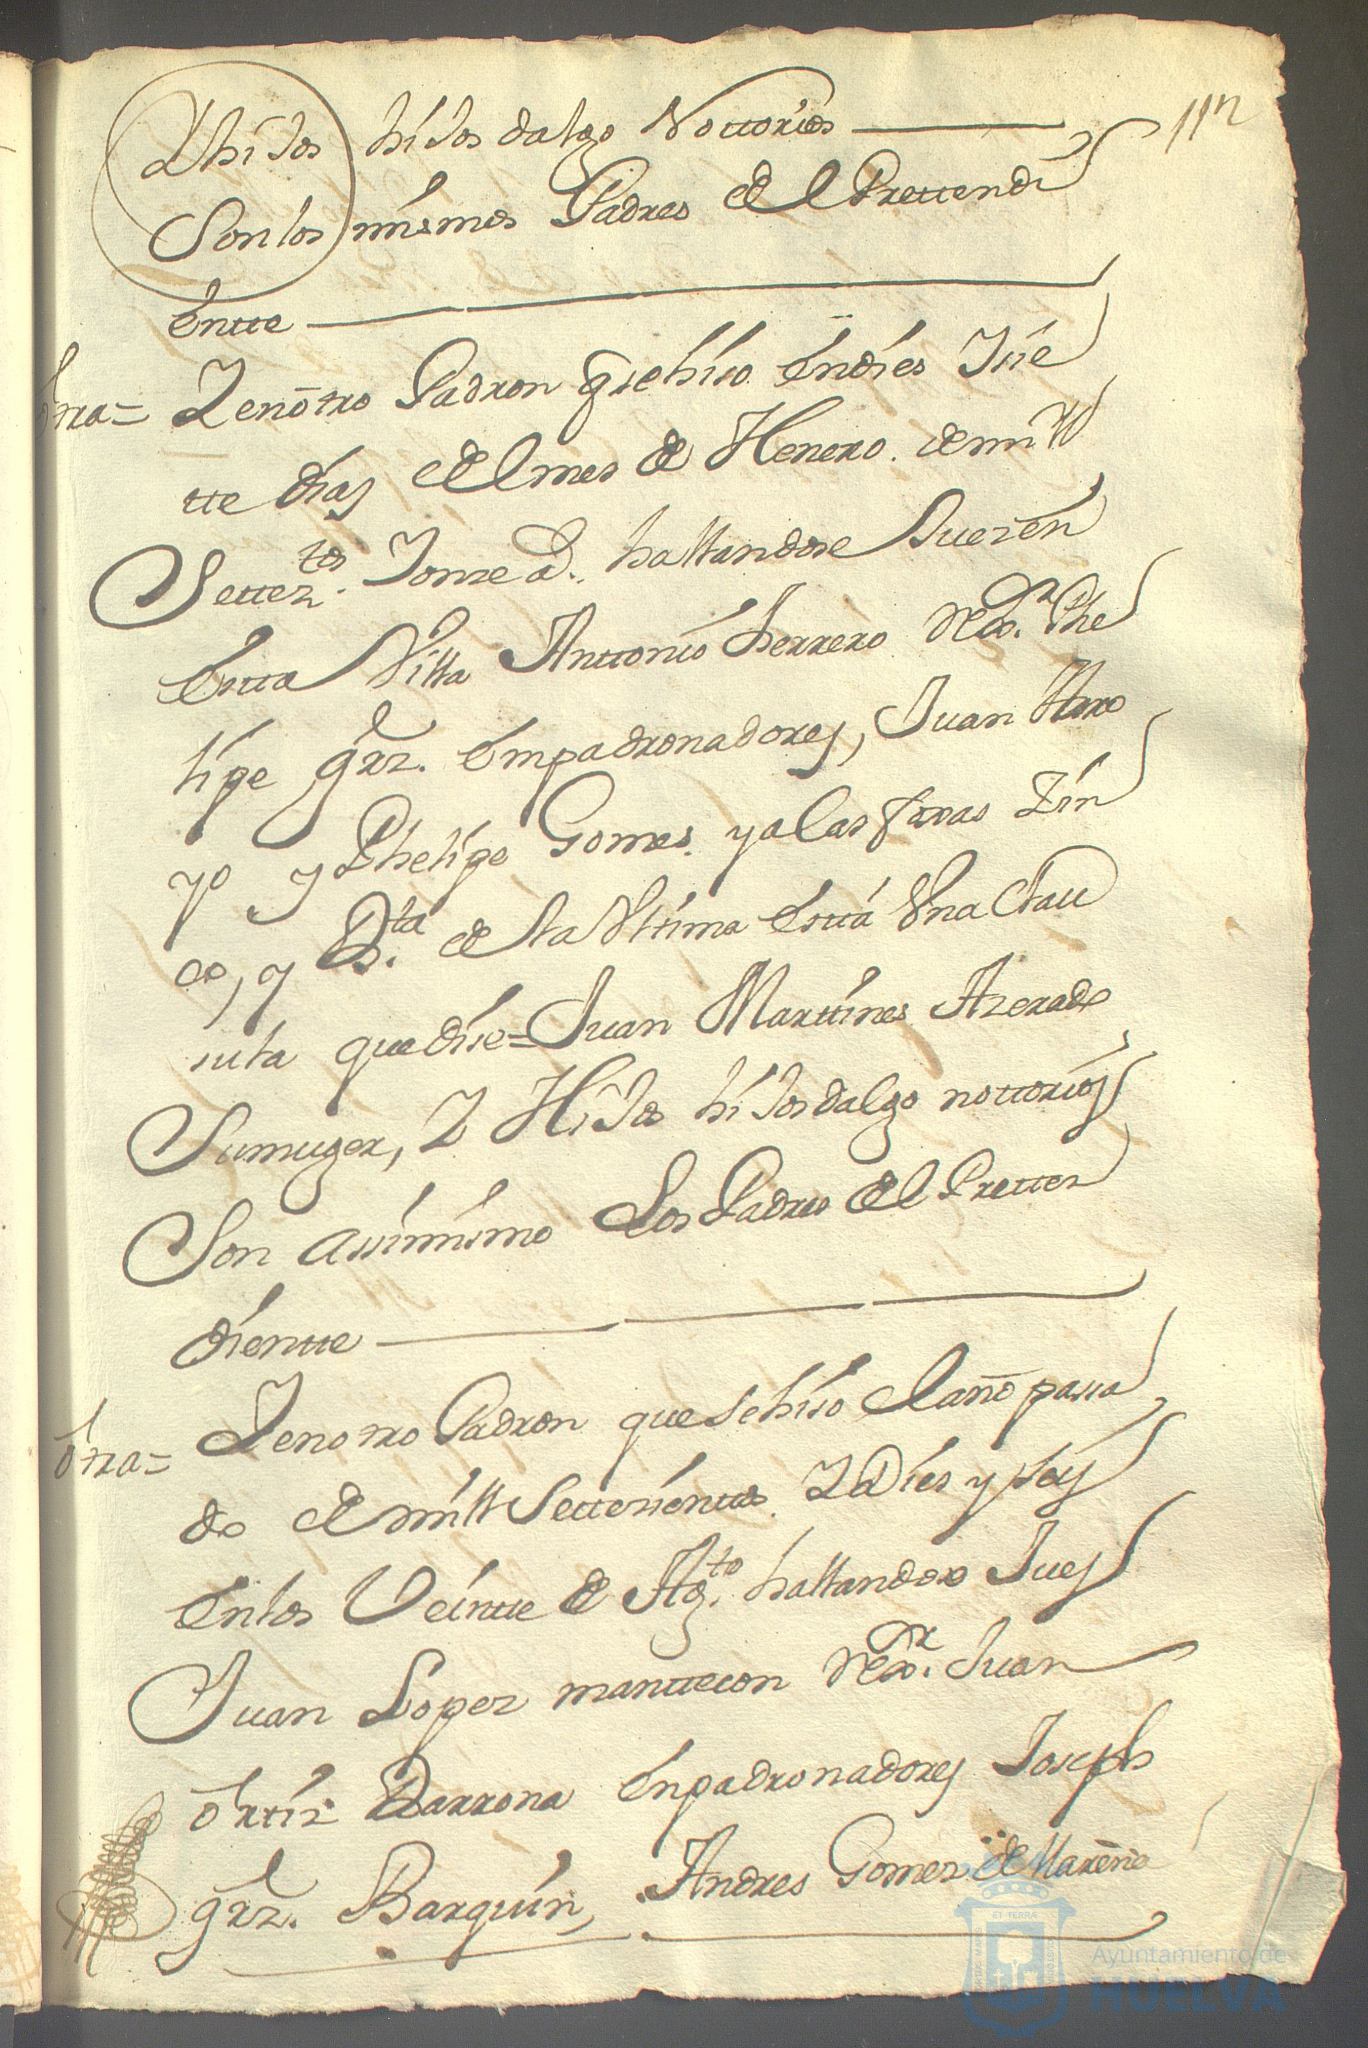 112
Y hijos hijos dalgo Nottorios
Son los mismos Padres de el Prettendi
entte
otra = Y en otro Padron q se hiso en dies Y sie
tte dias de el mes de Henero. de mill
Settez.tos Y onze a. hallandose Juez en
Estta Villa Anttonio herrero Rexor. Phe
lipe grz. Empadronadores, Juan Haro
yo y Phelipe Gomes. y a las foxas Zin
co, y Bta. de la Ultima Esttá Una Clau
sula que dise = Juan Marttines Azerado
Su muger, Y Hijos hijos dalgo nottorios
Son assimismo Los Padres de el Pretten
dientte
otra = Y en otro Padron que se hiso el año passa
do de mill Settezienttos. Y Dies y seis
En los Veintte de Agto. hallandose Jues
Juan Lopez manttecon Rexor. Juan
Ortiz Barrona Enpadronadores Joseph
grz. Barquin, Andres Gomez de Mareño
Ayuntamiento de
HUELVA